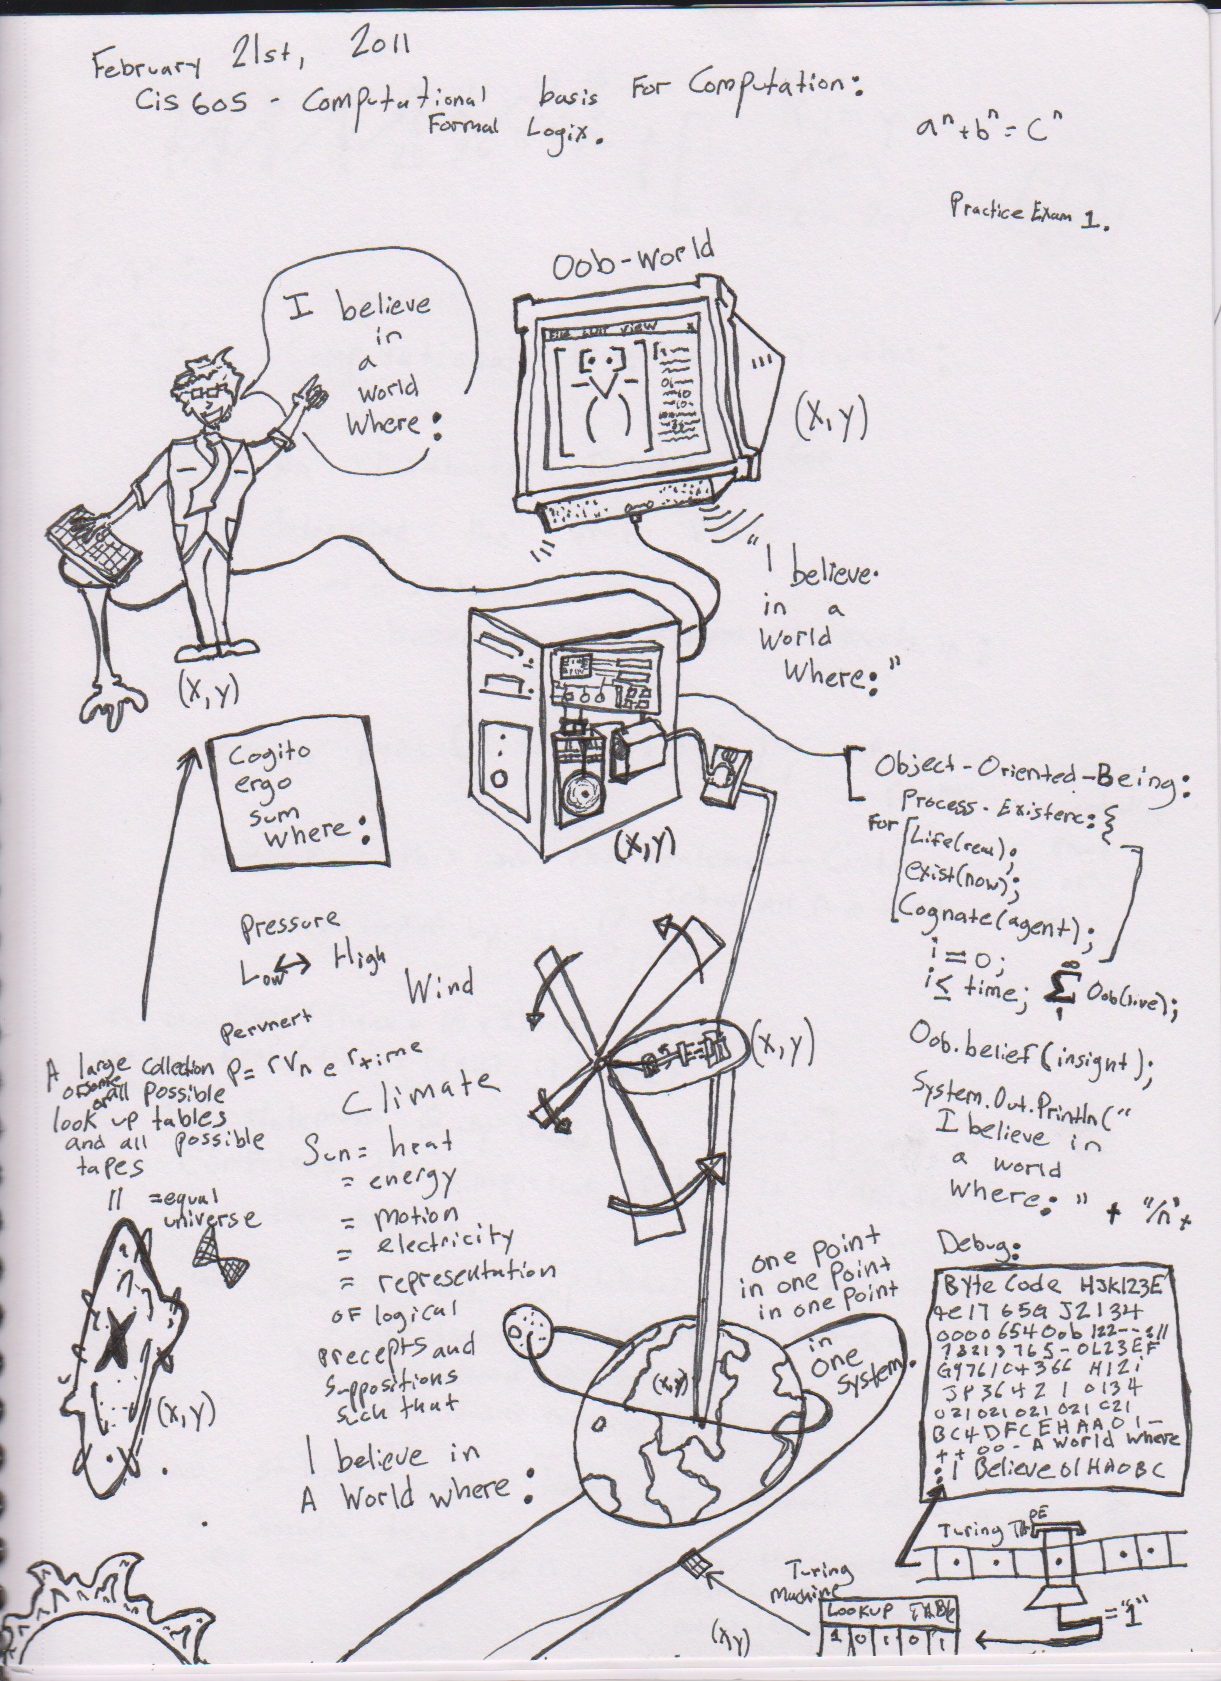 February 21st, 2011
Cis 605 - Computational basis For Computation:
Formal Logix.
a^n + b^n = c^n
Practice Exam 1.
I believe
in
a
world
where:
Oob-world
File Edit View x
(x,y)
"I believe
in a
world
where:"
(x,y)
Cogito
ergo
sum
where:
(x,y)
Object-Oriented-Being:
Process-Existenc: {
For [Life(real);
exist(now);
Cognate(agent);
i = 0;
i ≤ time; ∞ Σ 1 Oob(live);
Oob.belief(insight);
System.Out.Println("
I believe in
a world
where:" + "/n"+
Pressure
Low ↔ High
Wind
(x,y)
Pervnert
P = rVn e r time
Climate
A large collection
of some or all possible
look up tables
and all possible
tapes
= equal
universe
(x,y)
Sun = heat
= energy
= motion
= electricity
= representation
of logical
precepts and
suppositions
such that
I believe in
A World where:
one point
in one point
in one point
in
one
system.
(x,y)
Debug:
Byte Code HJK123E
4e17 65G J2134
0000654 Oob 122--:11
78213765-0L23EF
G976104366 H121
JP36421 0134
021 021 021 021 021
BC4DFCEHAA01-
++ 00 - A world where
: I Believe 01HA0BC
Turing Tape
= "1"
Turing
Machine
Lookup Table
1 0 1 0 1
(x,y)